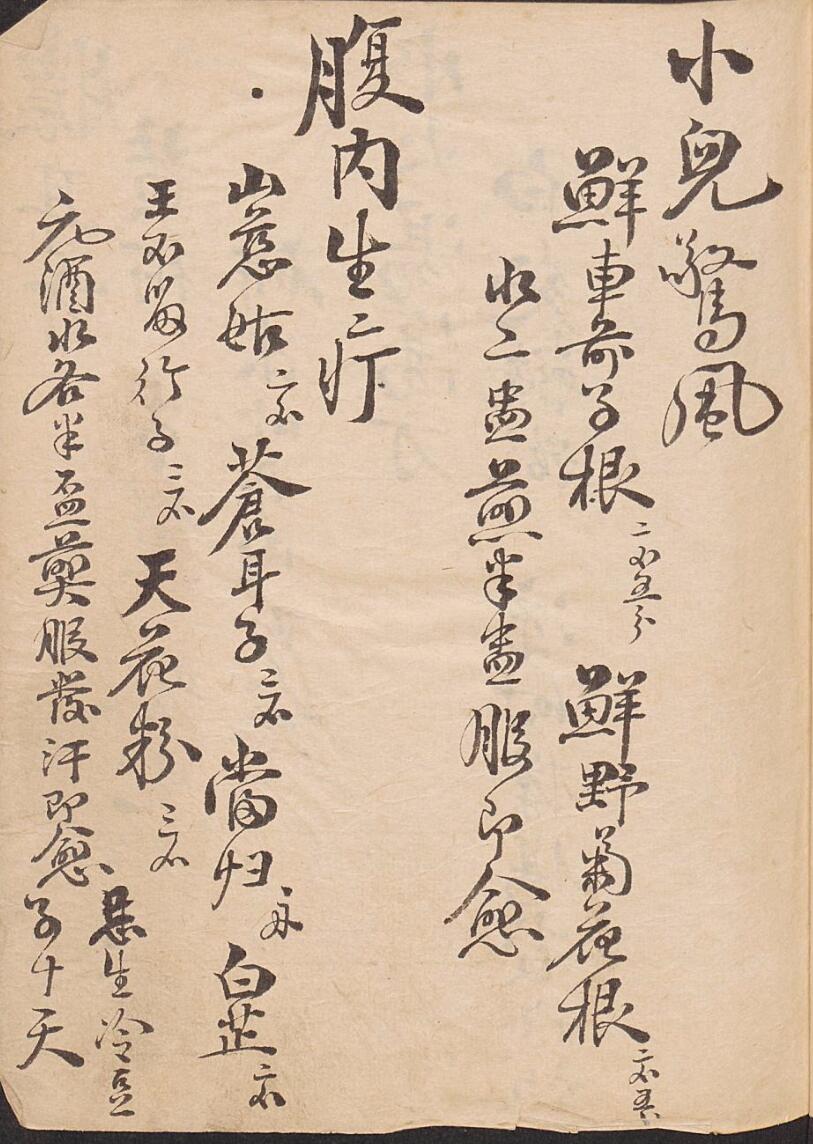 小兒驚風
鮮車前子根二錢五分 鮮野菊花根二錢五分
水二盅煎半盅服即愈
腹内生疔
山慈姑三錢 蒼耳子三錢 當归 白芷三錢
王不留行子三錢 天花粉三錢 忌生冷豆
元酒水各半盃煎服發汗即愈 子十天